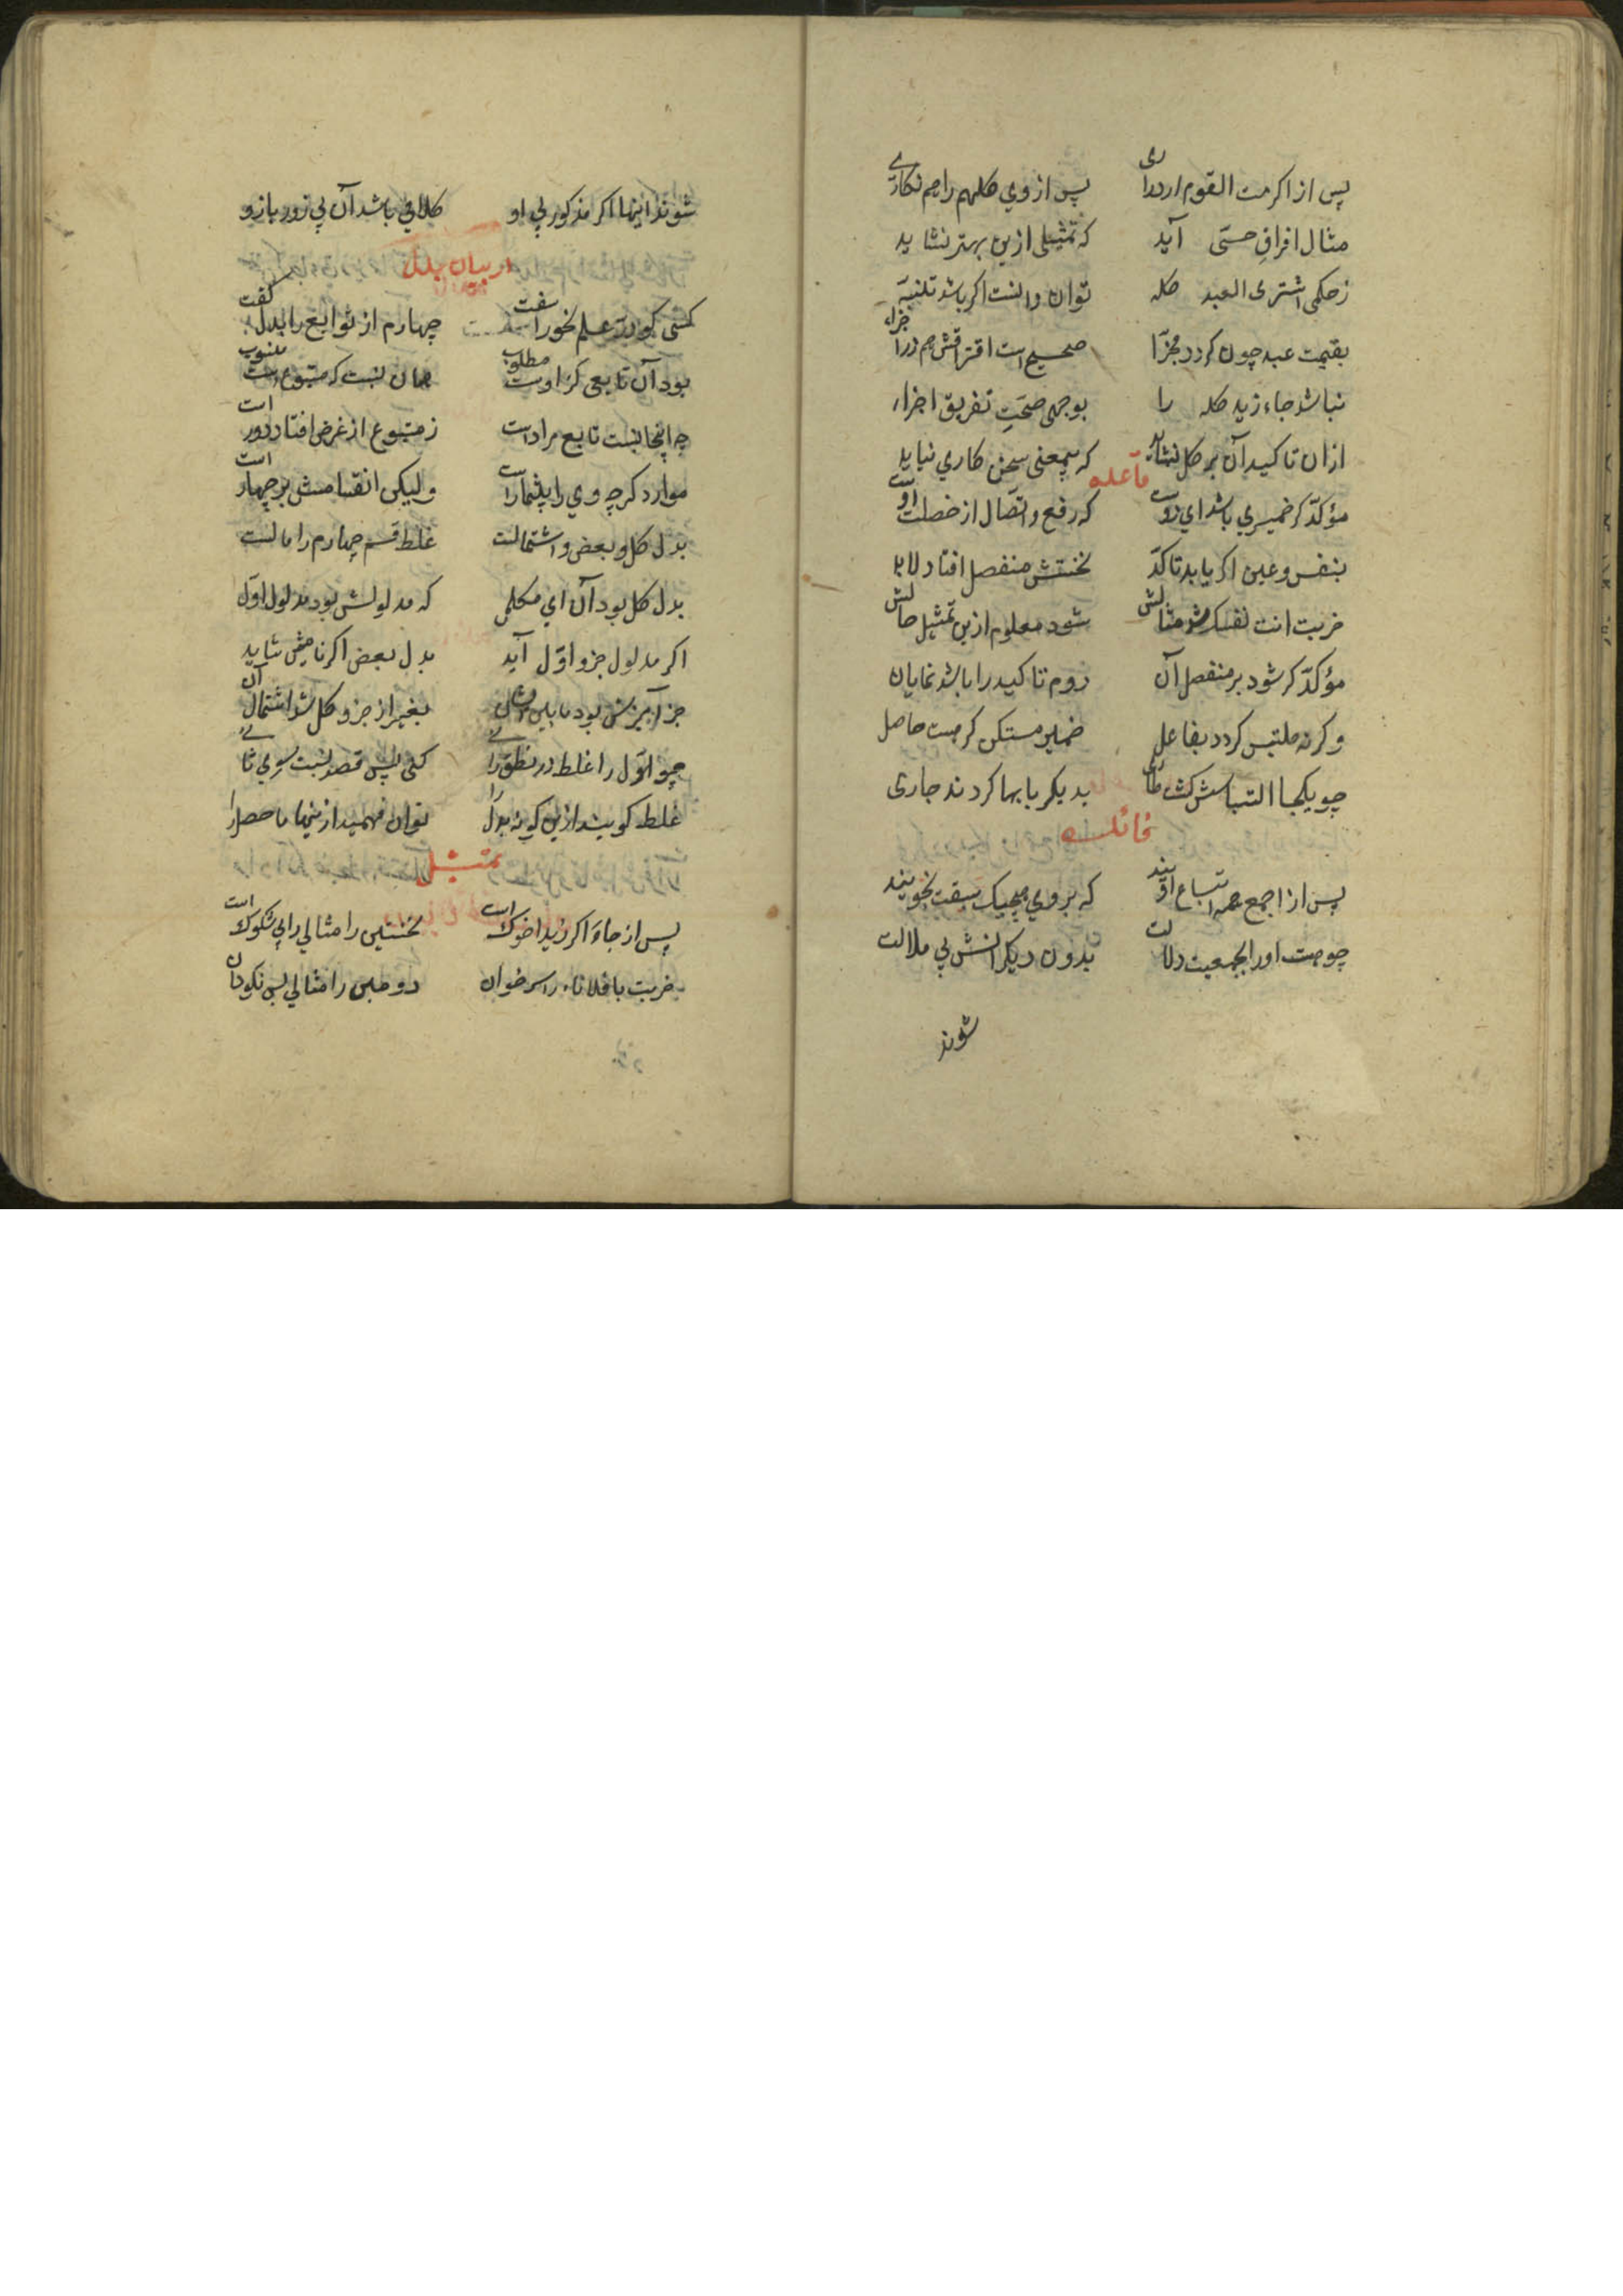 پس از اکرمت القوم ار رداری پس از وی کلهم را هم نکاری
مثال افراق حسّی آید که تمثیلی ازین بهتر نشاید
ز حکمی اشتری العبد کله توان دانست اکر باشد
بقیمت عبد چون کردد مجزّا صحیح است افتراقش هم در اجزاء
نباشد جاء زید کله را بوجهی صحّت تفریق اجزاء
ازان تاکید آن بر کل نشاید که بیمعنی سخن کاری نیاید
قاعده
مؤکدّ کر ضمیری باشد ای دوست که رفع و اتّصال از خصلت اوست
بنفس و عین اکر یابد تاکدّ نخستش منفصل افتاد لابد
ضربت انت نفسک شد مثالش شود معلوم ازین تمثیل حالش
مؤکدّ کر شود بر منفصل آن لزوم تاکید را باشد نمایان
و کرنه ملتبس کردد بفاعل ضمیر مستکن کر هست حاصل
چو یکجا التباسش کشت طاری بدیکر بابها کردند جاری
فائده
پس از اجمع همه اتباع اویند که بر وی هیچیک سبقت نجویند
چو هست او را بجمعیت دلالت بدون دیکرانش بی ملالت
شوند
شوند اینها اکر مذکور بی او کلامی باشد آن بی زور بازو
در بیان بدل
کسی کو درّ علم نحو را سفت چهارم از توابع را بدل گفت
بود آن تابعی کز اوست مطلوب همان نسبت که متبوع است منسوب
چه اینجا نسبت تابع مراد است ز متبوع از غرض افتاد دور است
موارد کرچه وی را بیشمار است ولیکن انقسامش بر چهار است
بدل کل و بعض و اشتمالست غلط قسم چهارم را مالست
بدل کل بود آن ای مکمل که مدلولش بود مدلول اوّل
اکر مدلول جزو اوّل آید بدل بعض اکر نامیش شاید
جز آمیزش بود مابین ایشان بغیر از جزو کل شد اشتمال آن
چو اوّل را غلط در نطق رانی کنی پس قصد نسبت سوی ثانی
غلط کویند ازین کونه بدل را توان فهمید ازینها ماحصل را
تمثیل
پس از جاءَ اکر زید اخوک است نخستین را مثالی رابی شکوک است
ضربت با فلانا راسه خوان دومین را مثالی بس نکو دان